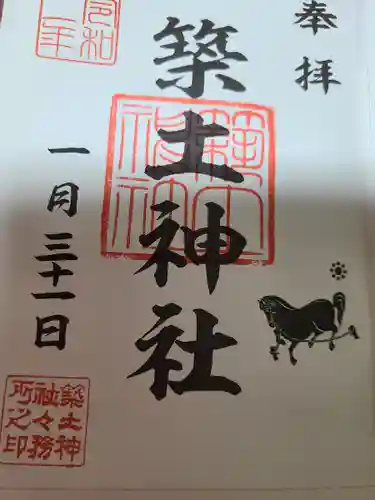 奉拝
築土神社
築土神社
令和二年
一月三十一日
築土神社々務所之印